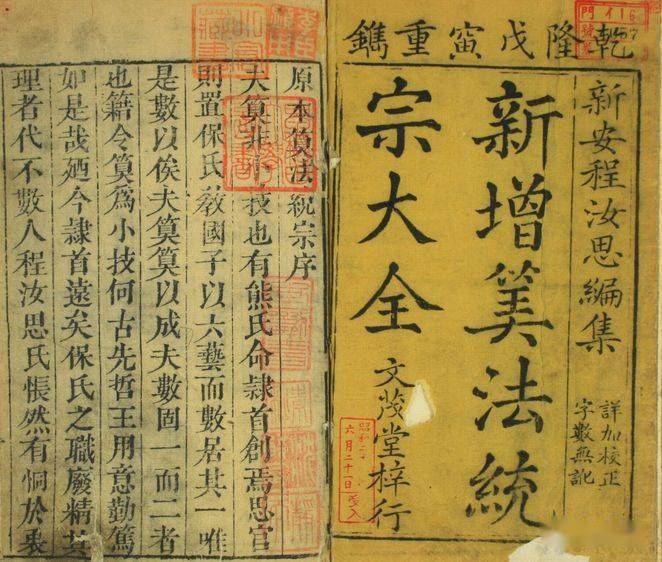 乾隆戊寅重鐫
新安程汝思編集
詳加校正
字數無訛
新增筭法統
宗大全
文茂堂梓行
六月二十日
原本筭法統宗序
夫筭非技也有熊氏命隸首創焉官
則置保氏敎國子以六藝而數居其一唯
是數以俟夫筭筭以成夫數固一而二者
也籍令筭爲小技何古先哲王用意勤篤
如是哉廼今隸首遠矣保氏之職廢精其
理者代不數人程汝思氏悵然有恫於衷